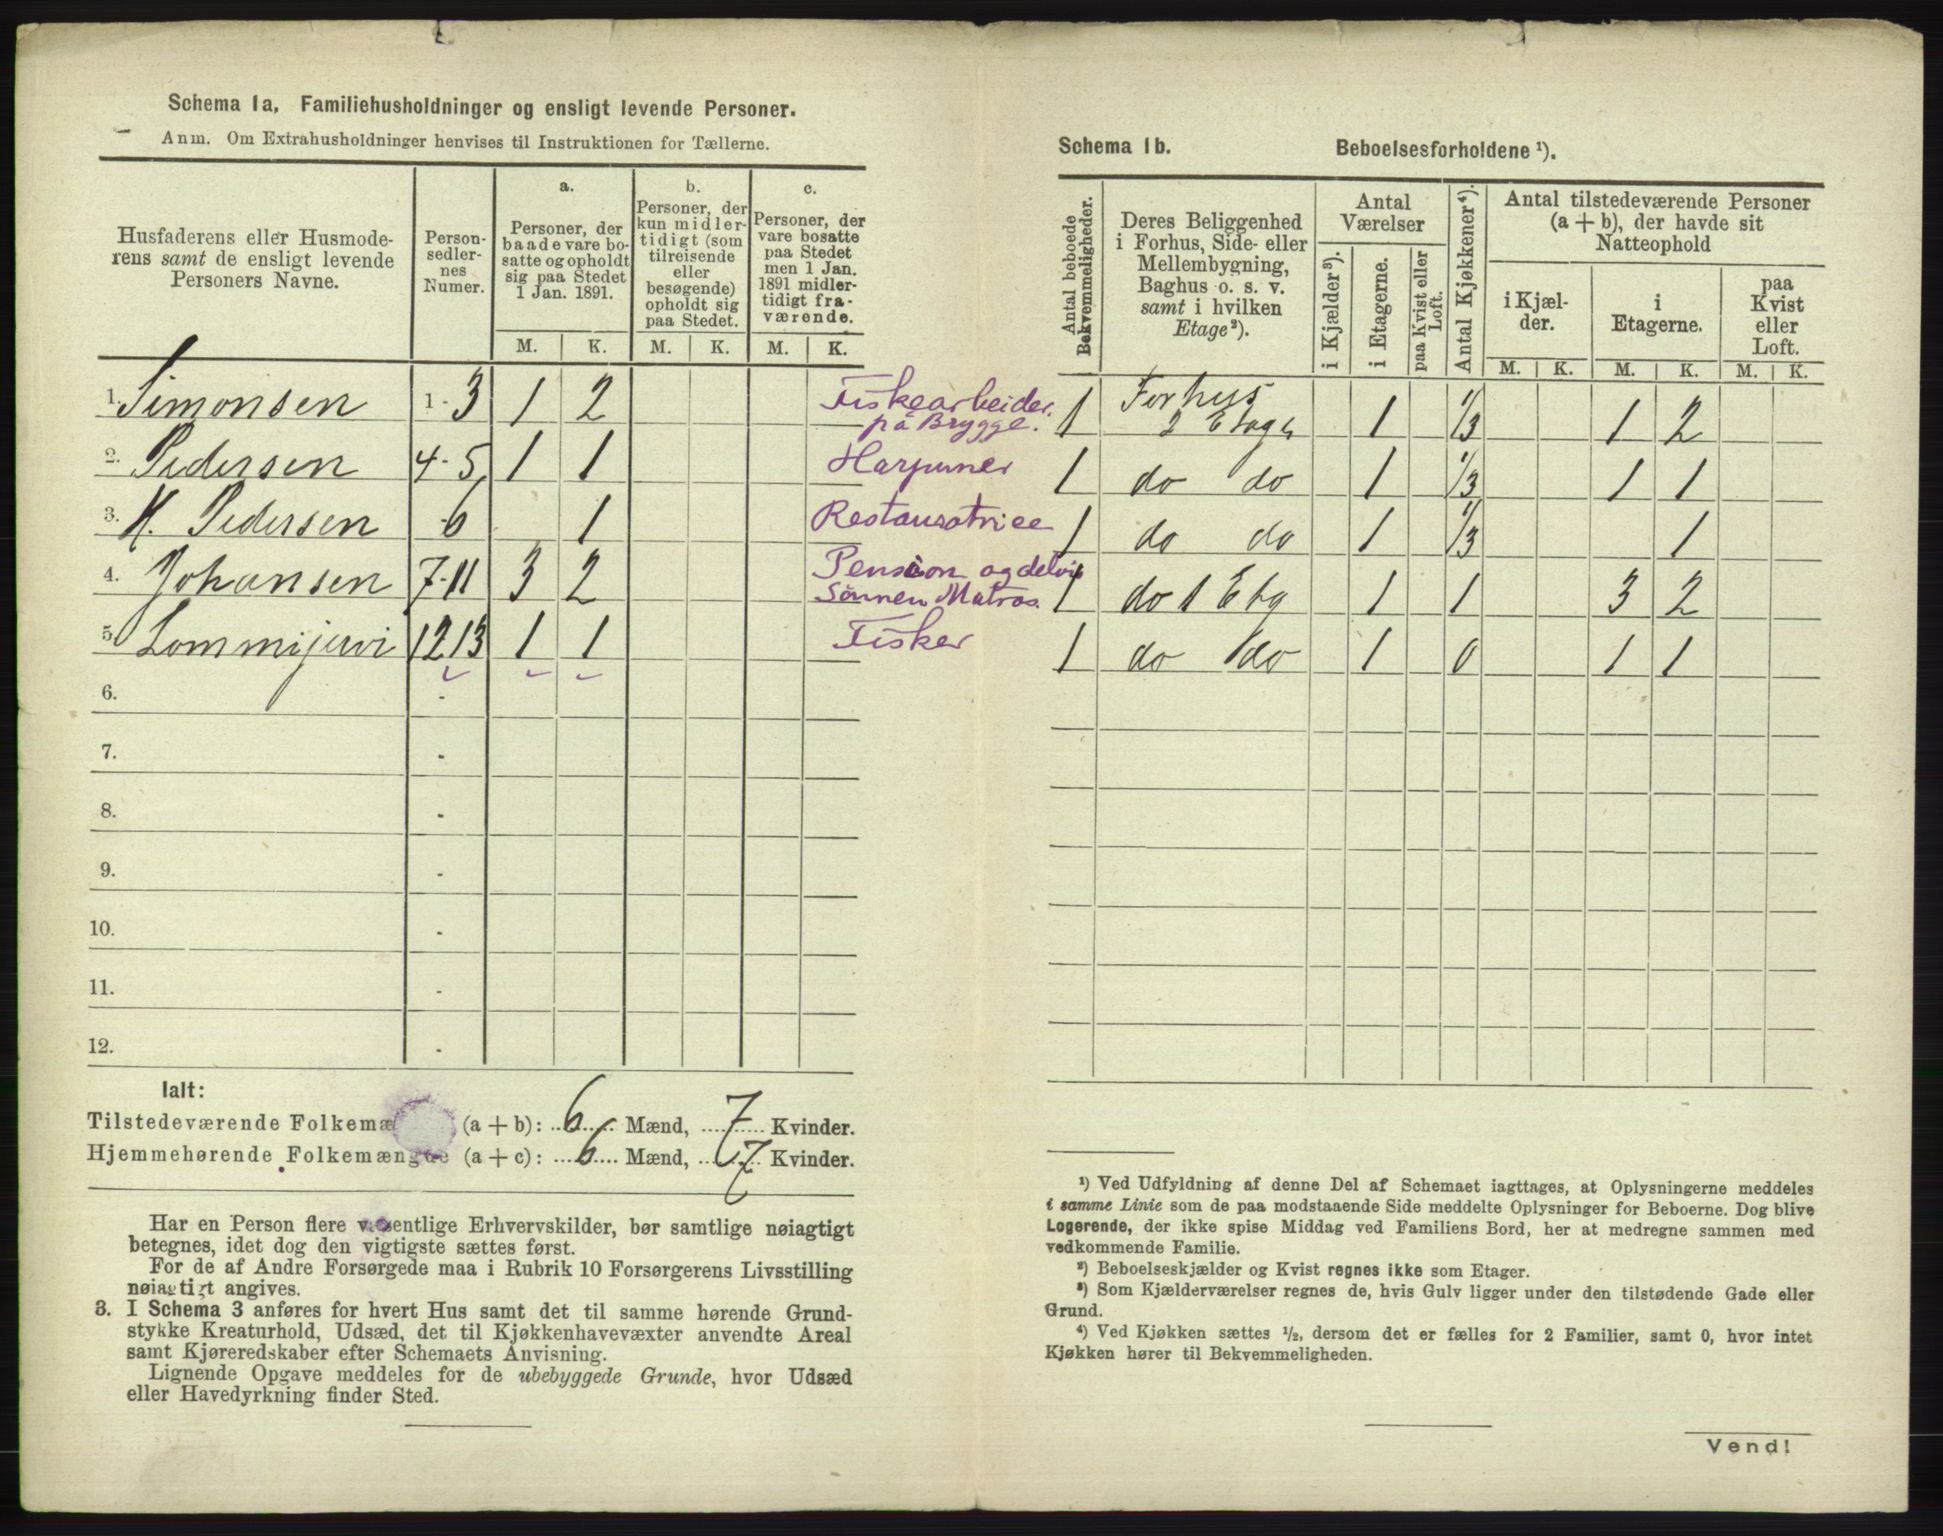 Schema 1a, Familiehusholdninger og ensligt levende Personer.
Anm. Om Extrahusholdninger henvises til Instruktionen for Tællerne.
Husfaderens eller Husmode-
rens samt de ensligt levende
Personers Navne.
Person-
sedler-
nes
Numer.
a.
Personer, der
baade vare bo-
satte og opholdt
sig paa Stedet
1 Jan. 1891.
b.
Personer, der
kun midler-
tidigt (som
tilreisende
eller
besøgende)
opholdt sig
paa Stedet.
c.
Personer, der
vare bosatte
paa Stedet
men 1 Jan.
1891 midler-
tidigt fra-
værende.
M. K. M. K. M. K.
1. Simonsen 1 - 3 1 2 Fiskearbeider
på Brygge.
2. Pedersen 4 - 5 1 1 Harpuner
3. H. Pedersen 6 1 Restauratrice
4. Johansen 7-11 3 2 Pension og delvis
Sønnen Matros.
5. Lommijervi 12 13 1 1 Fisker
6. -
7. -
8. -
9. -
10. -
11. -
12. -
Ialt:
Tilstedeværende Folkemæ (a + b): 6 Mænd, 7 Kvinder.
Hjemmehørende Folkemængde (a + c): 6 Mænd, 7 Kvinder.
Har en Person flere væsentlige Erhvervskilder, bør samtlige nøiagtigt
betegnes, idet dog den vigtigste sættes først.
For de af Andre Forsørgede maa i Rubrik 10 Forsørgerens Livsstilling
nøiagtigt angives.
3. I Schema 3 anføres for hvert Hus samt det til samme hørende Grund-
stykke Kreaturhold, Udsæd, det til Kjøkkenhavevæxter anvendte Areal
samt Kjøreredskaber efter Schemaets Anvisning.
Lignende Opgave meddeles for de ubebyggede Grunde, hvor Udsæd
eller Havedyrkning finder Sted.
Schema 1b. Beboelsesforholdene ¹).
Antal beboede
Bekvemmeligheder.
Deres Beliggenhed
i Forhus, Side- eller
Mellembygning,
Baghus o. s. v.
samt i hvilken
Etage²).
Antal
Værelser
i Kjælder³).
i Etagerne.
paa Kvist eller
Loft.
Antal Kjøkkener⁴).
Antal tilstedeværende Personer
(a + b), der havde sit
Natteophold
i Kjæl-
der.
i
Etagerne.
paa
Kvist
eller
Loft.
M. K. M. K. M. K.
1 Forhus
2 Etage 1 1/3 1 2
1 do do 1 1/3 1 1
1 do do 1 1/3 1
1 do 1 Etg 1 1 3 2
1 do 1 do 1 0 1 1
¹) Ved Udfyldning af denne Del af Schemaet iagttages, at Oplysningerne meddeles
i samme Linie som de paa modstaaende Side meddelte Oplysninger for Beboerne. Dog blive
Logerende, der ikke spise Middag ved Familiens Bord, her at medregne sammen med
vedkommende Familie.
²) Beboelseskjælder og Kvist regnes ikke som Etager.
³) Som Kjælderværelser regnes de, hvis Gulv ligger under den tilstødende Gade eller
Grund.
⁴) Ved Kjøkken sættes ½, dersom det er fælles for 2 Familier, samt 0, hvor intet
Kjøkken hører til Bekvemmeligheden.
Vend!